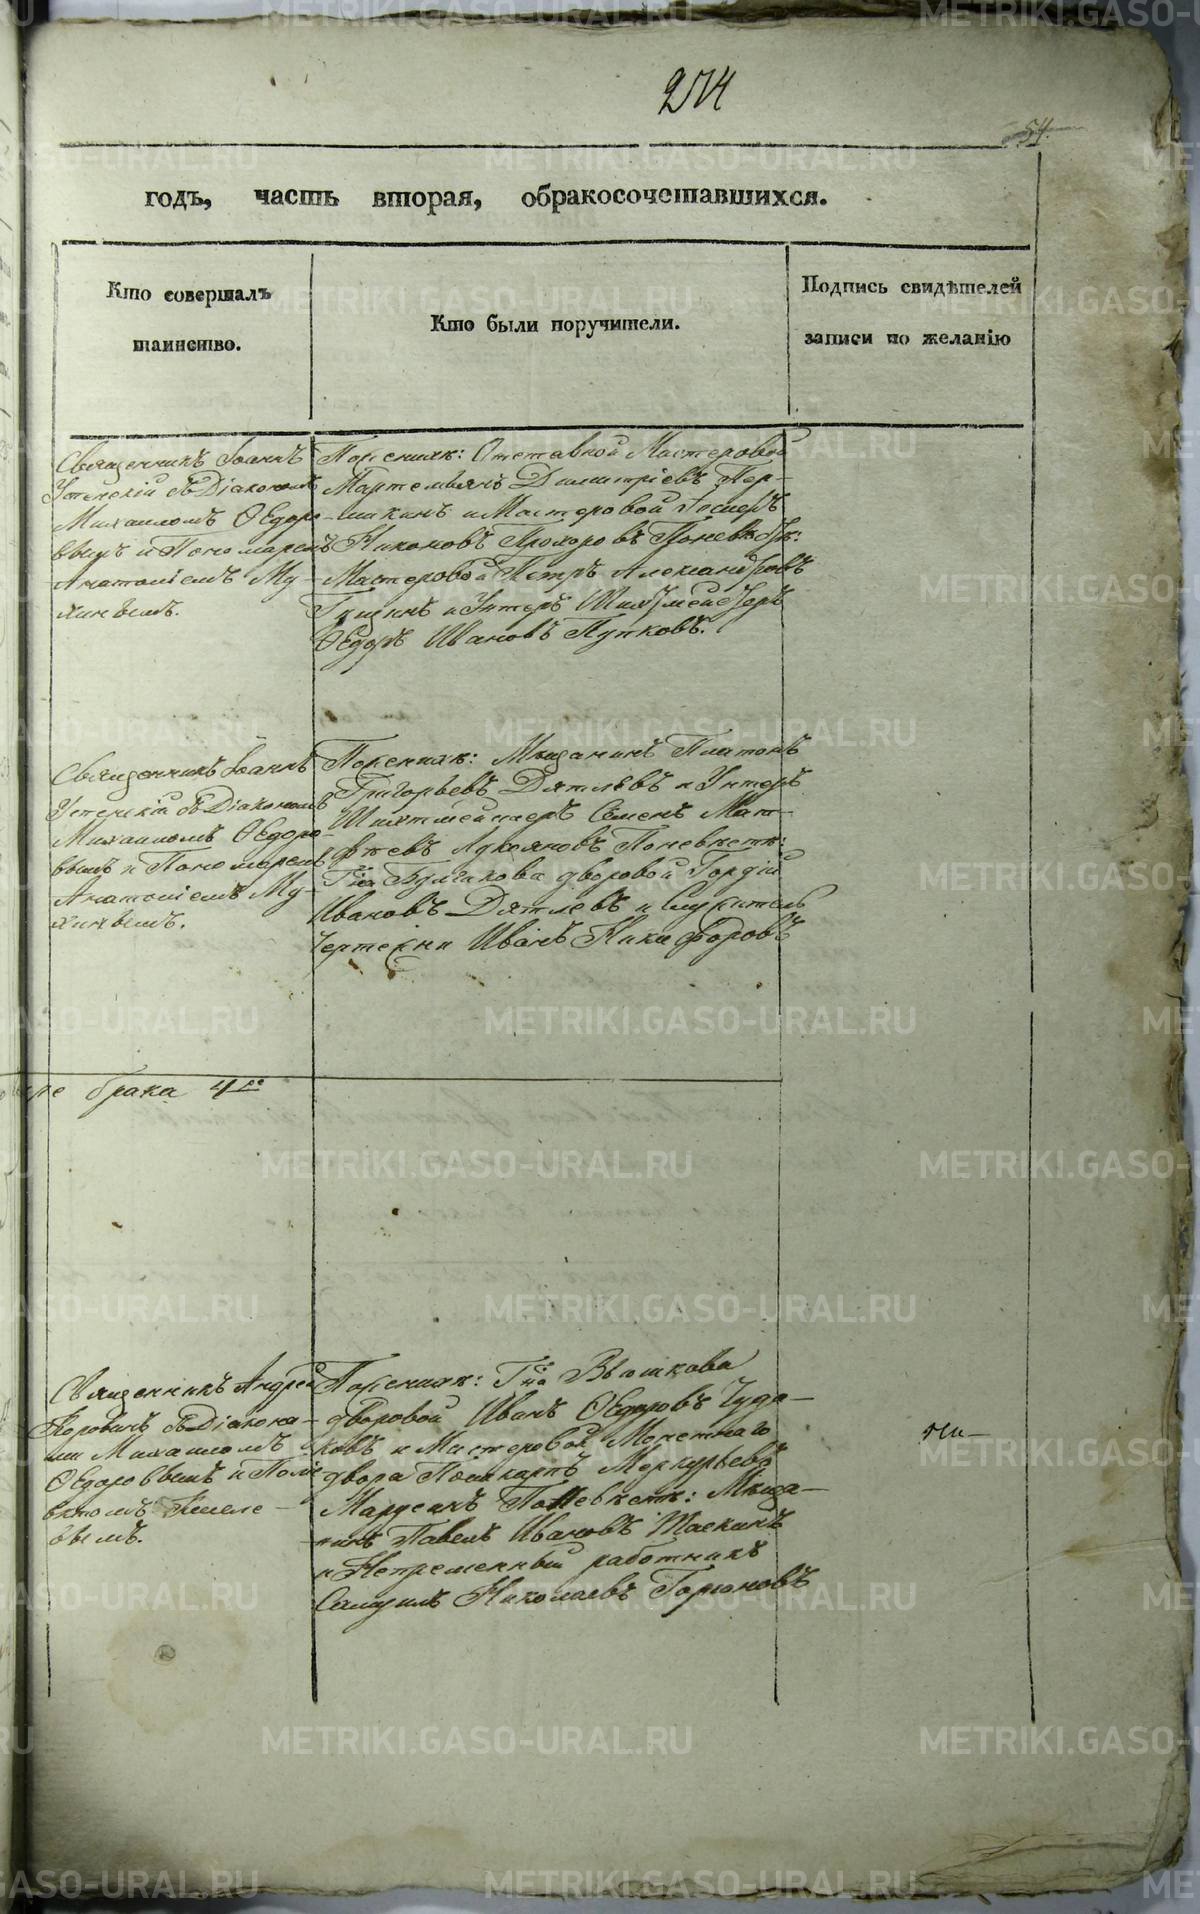 274
54.
годъ, часть вторая, обракосочетавшихся.
Кто совершалъ
таинство.
Кто были поручители.
Подпись свидѣтелей
записи по желанію
Священникъ Іоаннъ
Успенскій съ Діакономъ
Михаиломъ Ѳедоро-
вымъ и Пономаремъ
Анатоліемъ Му-
хинымъ.
По женихѣ: Отставной Мастеровой
Мартемьянъ Димитріевъ Пер-
шинъ и Мастеровой
Никоновъ Прохоровъ По невѣстѣ:
Мастеровой Петръ Александровъ
и Унтеръ Шихтмейстеръ
Ѳедоръ Ивановъ Пупковъ.
Священникъ Іоаннъ
Успенскій съ Діакономъ
Михаиломъ Ѳедоро-
вымъ и Пономаремъ
Анатоліемъ Му-
хинымъ.
По женихѣ: Мѣщанинъ Платонъ
Григорьевъ Дятлевъ и Унтеръ
Шихтмейстеръ Семенъ Мат-
фѣевъ Лукояновъ По невѣстѣ:
Гна Булгакова дворовой Гордій
Ивановъ Дятлевъ и служитель
чертежни Иванъ Никифоровъ
брака 4ре
Священникъ Андрей
Коровинъ съ Діакона-
ми Михаиломъ
Ѳедоровымъ и Полі-
евктомъ Киселе-
вымъ.
По женихѣ: Гна Вьюшкова
дворовой Иванъ Ѳедоровъ Чуда-
ковъ и Мастеровой Монетнаго
двора Поликарпъ Меркурьевъ
По невѣстѣ: Мѣща-
нинъ Павелъ Ивановъ
и Непременный работникъ
Самуилъ Николаевъ Горюновъ
METRIKI.GASO-URAL.RU